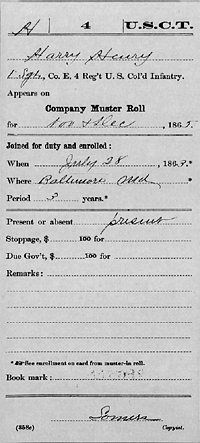 H 4 U.S.C.T.
Harry Henry
1 Sgt, Co. E, 4 Reg't U. S. Col'd Infantry.
Appears on
Company Muster Roll
for Nov & Dec, 1865.
Joined for duty and enrolled:
When July 28, 1863.*
Where Baltimore Md *
Period 3 years.*
Present or absent present
Stoppage, $ 100 for
Due Gov't, $ 100 for
Remarks:
* See enrollment on card from muster-in roll.
Book mark:
(358c) Copyist.